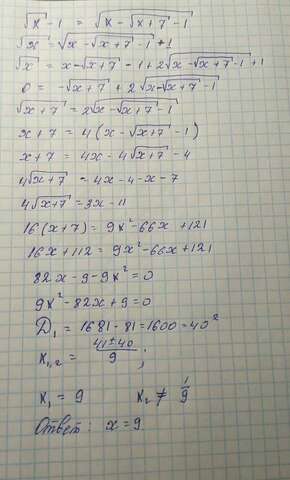 √x - 1 = √(x - √(x+7) - 1)
√x = √(x - √(x+7) - 1) + 1
√x = x - √(x+7) - 1 + 2√(x - √(x+7) - 1) + 1
0 = -√(x+7) + 2√(x - √(x+7) - 1)
√(x+7) = 2√(x - √(x+7) - 1)
x+7 = 4(x - √(x+7) - 1)
x+7 = 4x - 4√(x+7) - 4
4√(x+7) = 4x - 4 - x - 7
4√(x+7) = 3x - 11
16(x+7) = 9x² - 66x + 121
16x + 112 = 9x² - 66x + 121
82x - 9 - 9x² = 0
9x² - 82x + 9 = 0
D₁ = 1681 - 81 = 1600 = 40²
x₁,₂ = (41 ± 40)/9 ;
x₁ = 9 x₂ ≠ 1/9
Ответ: x = 9